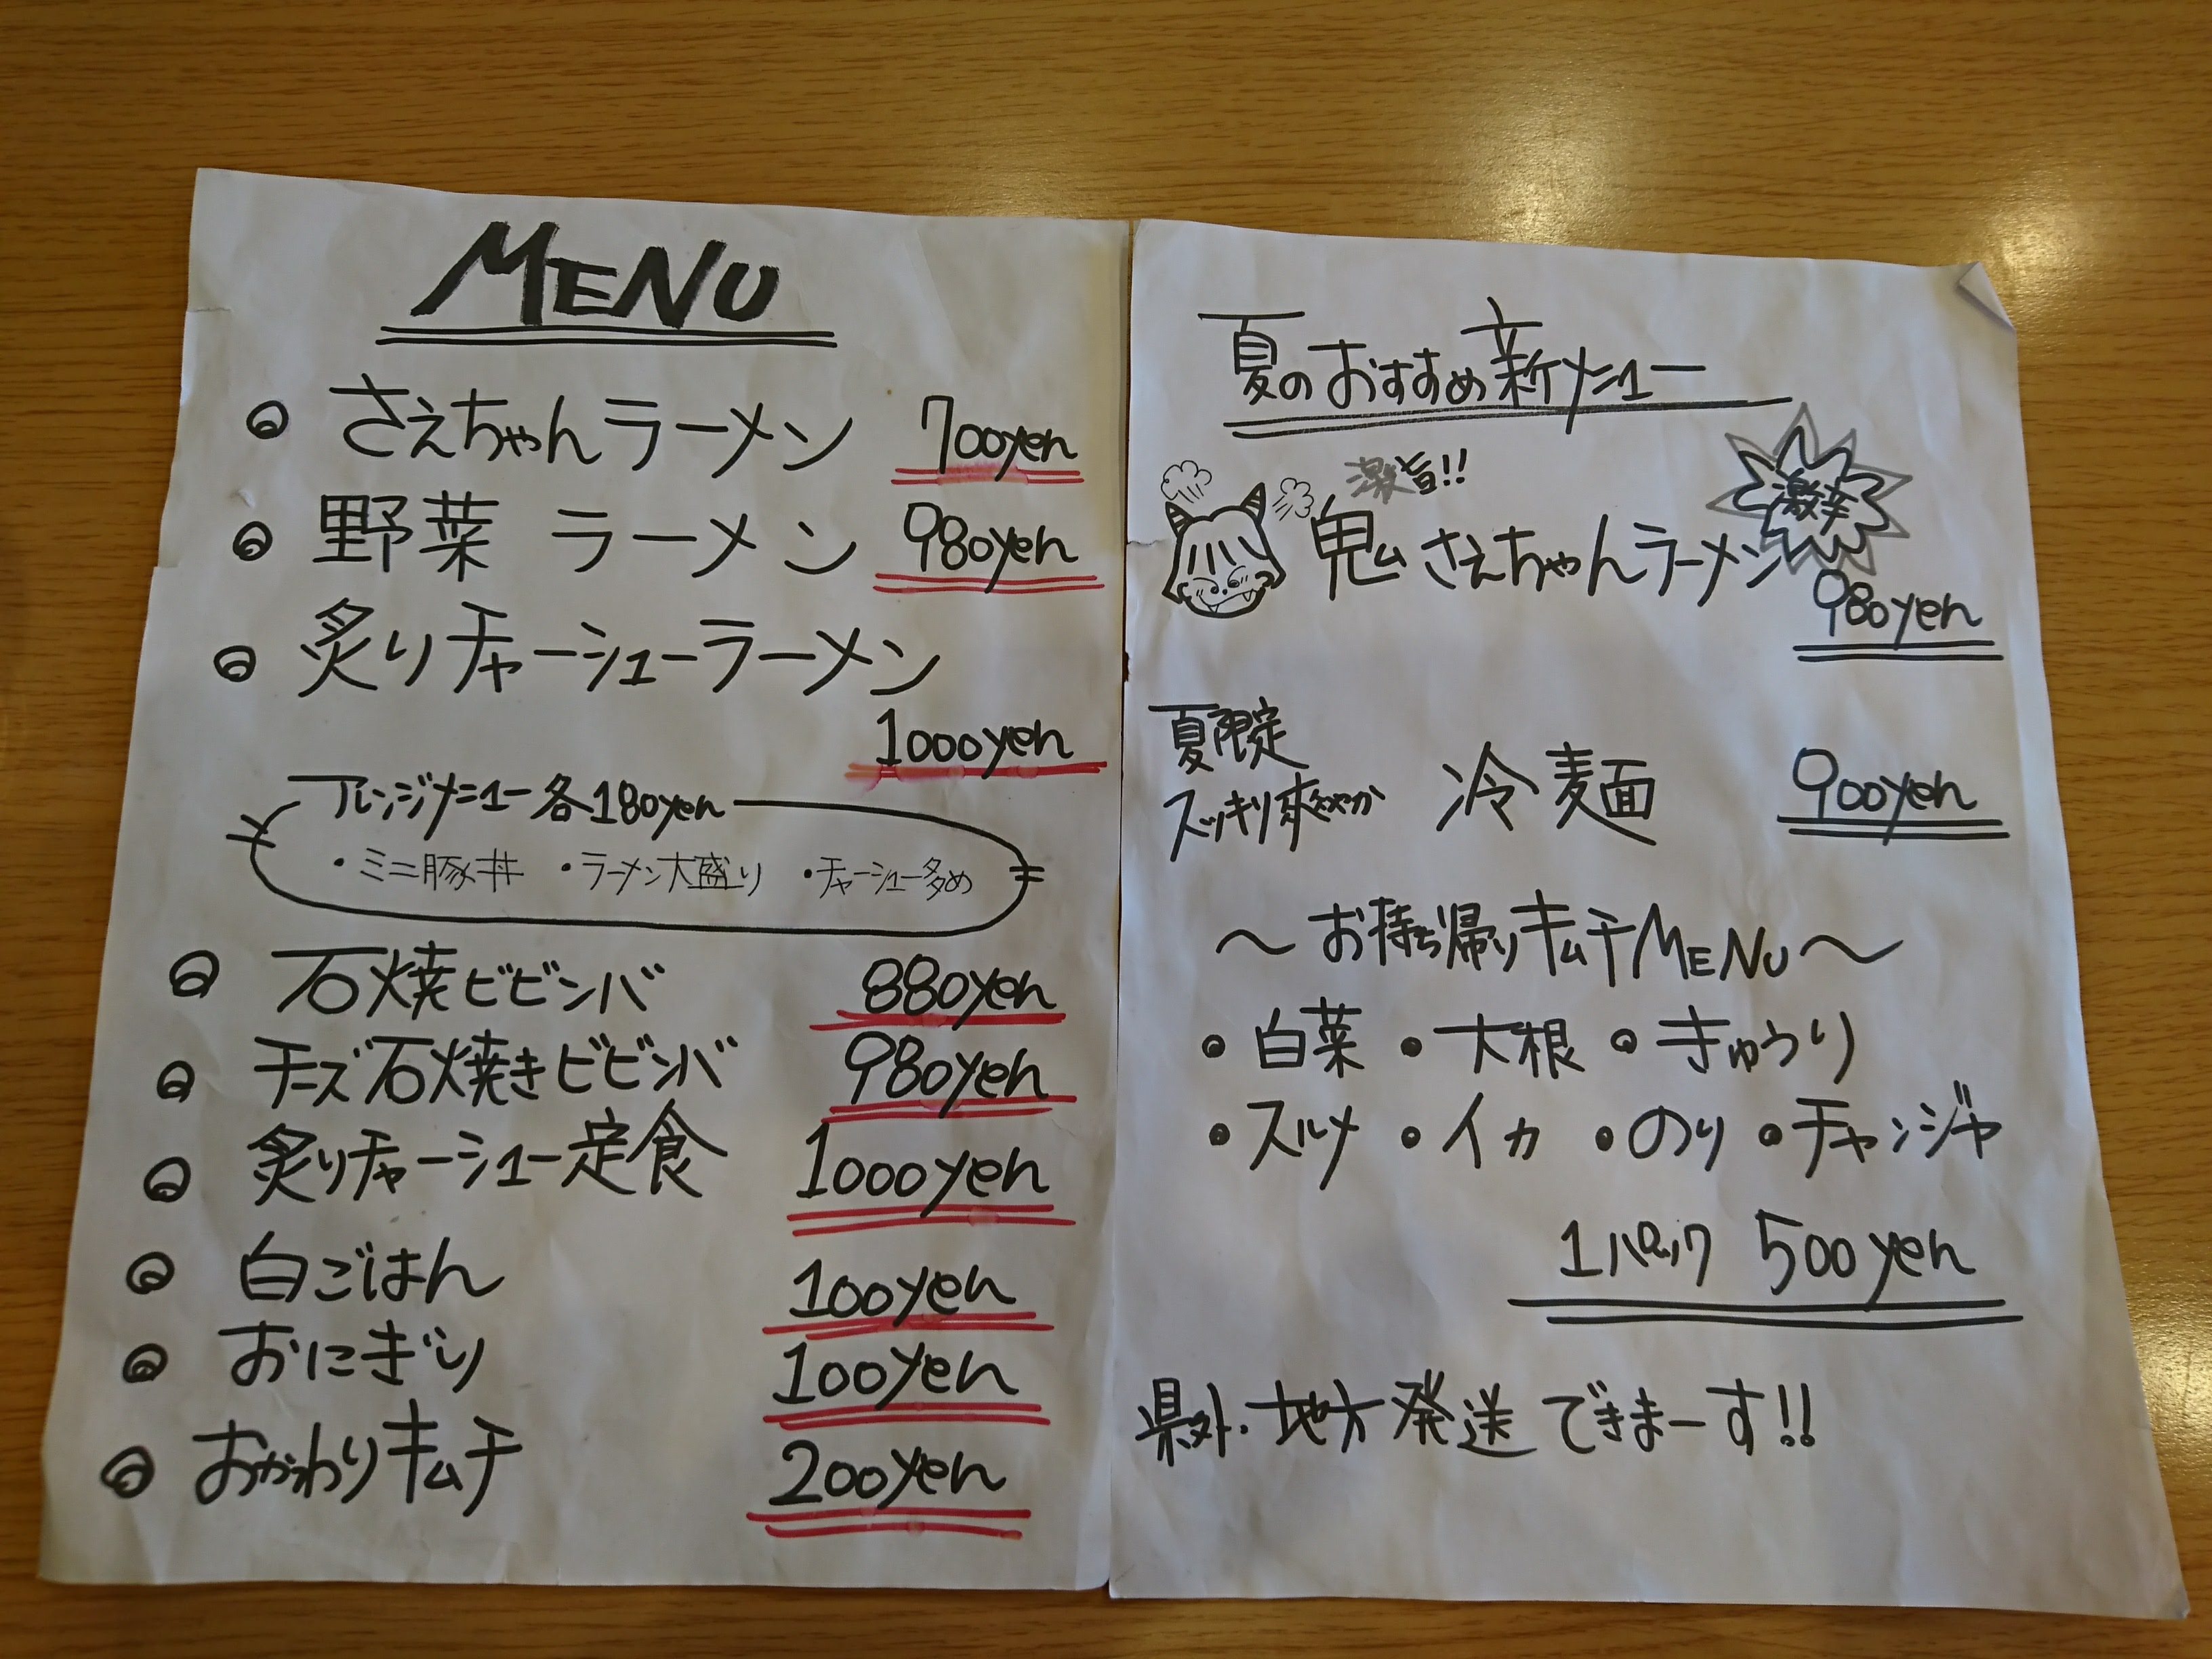 MENU
さえちゃんラーメン 700yen
野菜 ラーメン 980yen
炙りチャーシューラーメン
1000yen
アレンジメニュー各180yen
・ミニ豚丼 ・ラーメン大盛り ・チャーシュー多め
石焼ビビンバ 880yen
チーズ石焼きビビンバ 980yen
炙りチャーシュー定食 1000yen
白ごはん 100yen
おにぎり 100yen
おかわりキムチ 200yen
夏のおすすめ新メニュー
激旨!!
激辛
鬼さえちゃんラーメン
980yen
夏限定
スッキリ爽やか 冷麺 900yen
〜お持ち帰りキムチMENU〜
・白菜 ・大根 ・きゅうり
・スルメ ・イカ ・のり ・チャンジャ
1パック 500yen
県外・地方発送できまーす!!